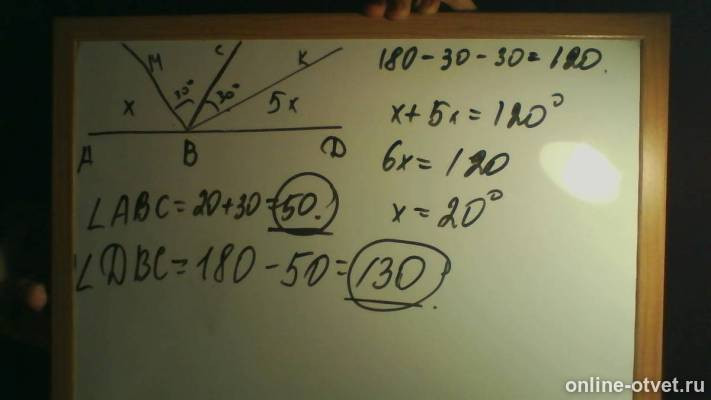 M C K
x 30° 30° 5x
A B D
∠ABC = 20+30=50.
∠DBC = 180 - 50 = 130.
180 - 30 - 30 = 120.
x + 5x = 120°
6x = 120
x = 20°
online-otvet.ru